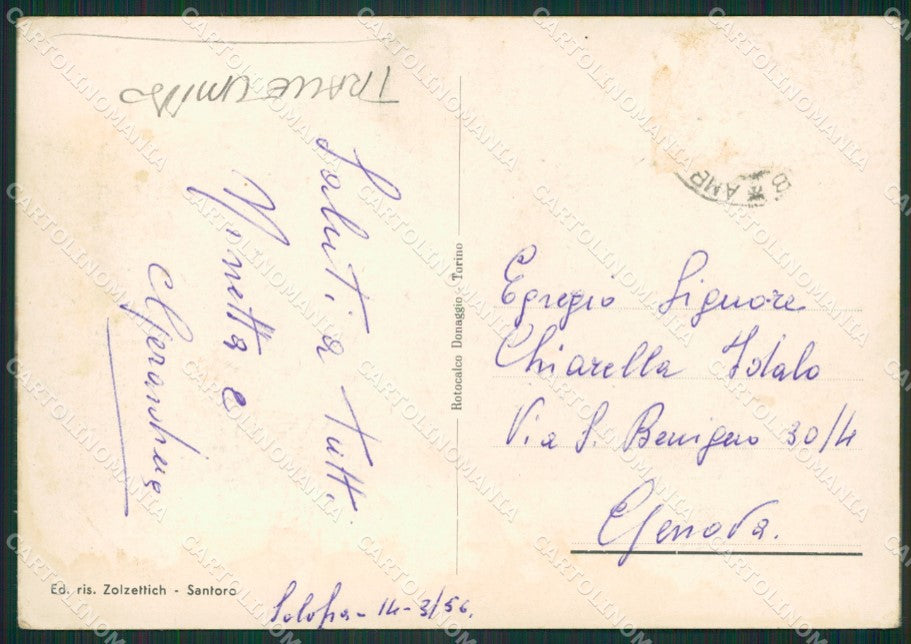 Saluti a tutti
Ninetta e
Gerardina
Rotocalco Donaggio - Torino
AMB
Egregio Signore
Chiarella Italo
Via S. Benigno 30/4
Genova.
Ed. ris. Zolzettich - Santoro
Solofra - 14-3/56.
CARTOLINOMANIA